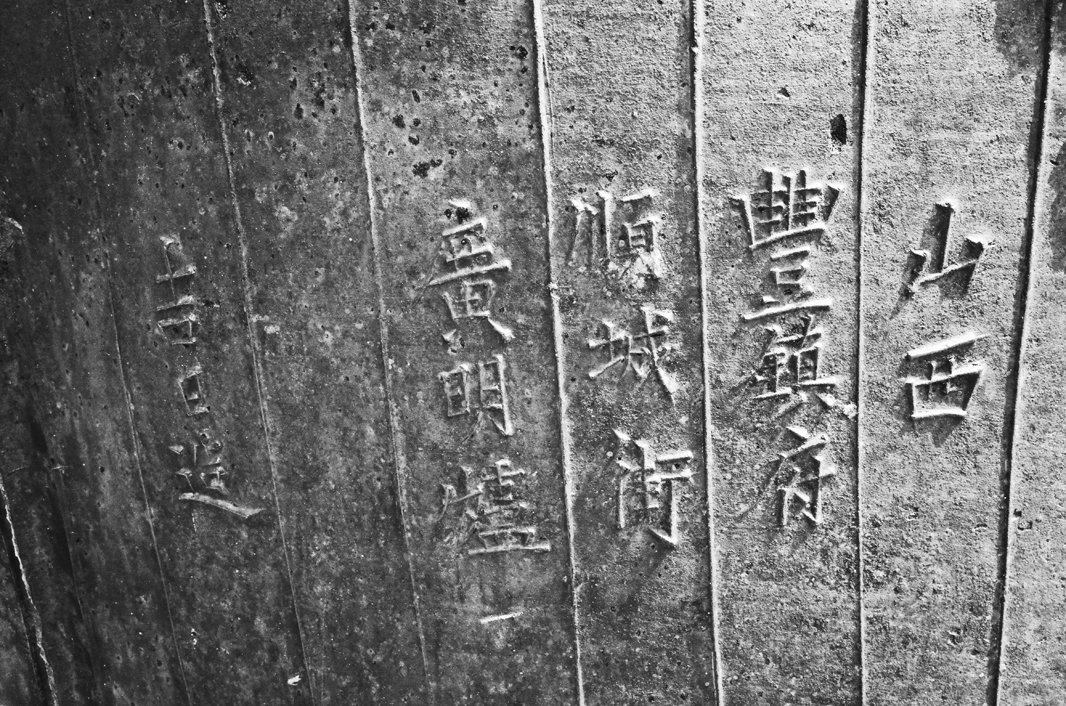 山西
豐鎮府
順城街
廣明爐一
吉日造